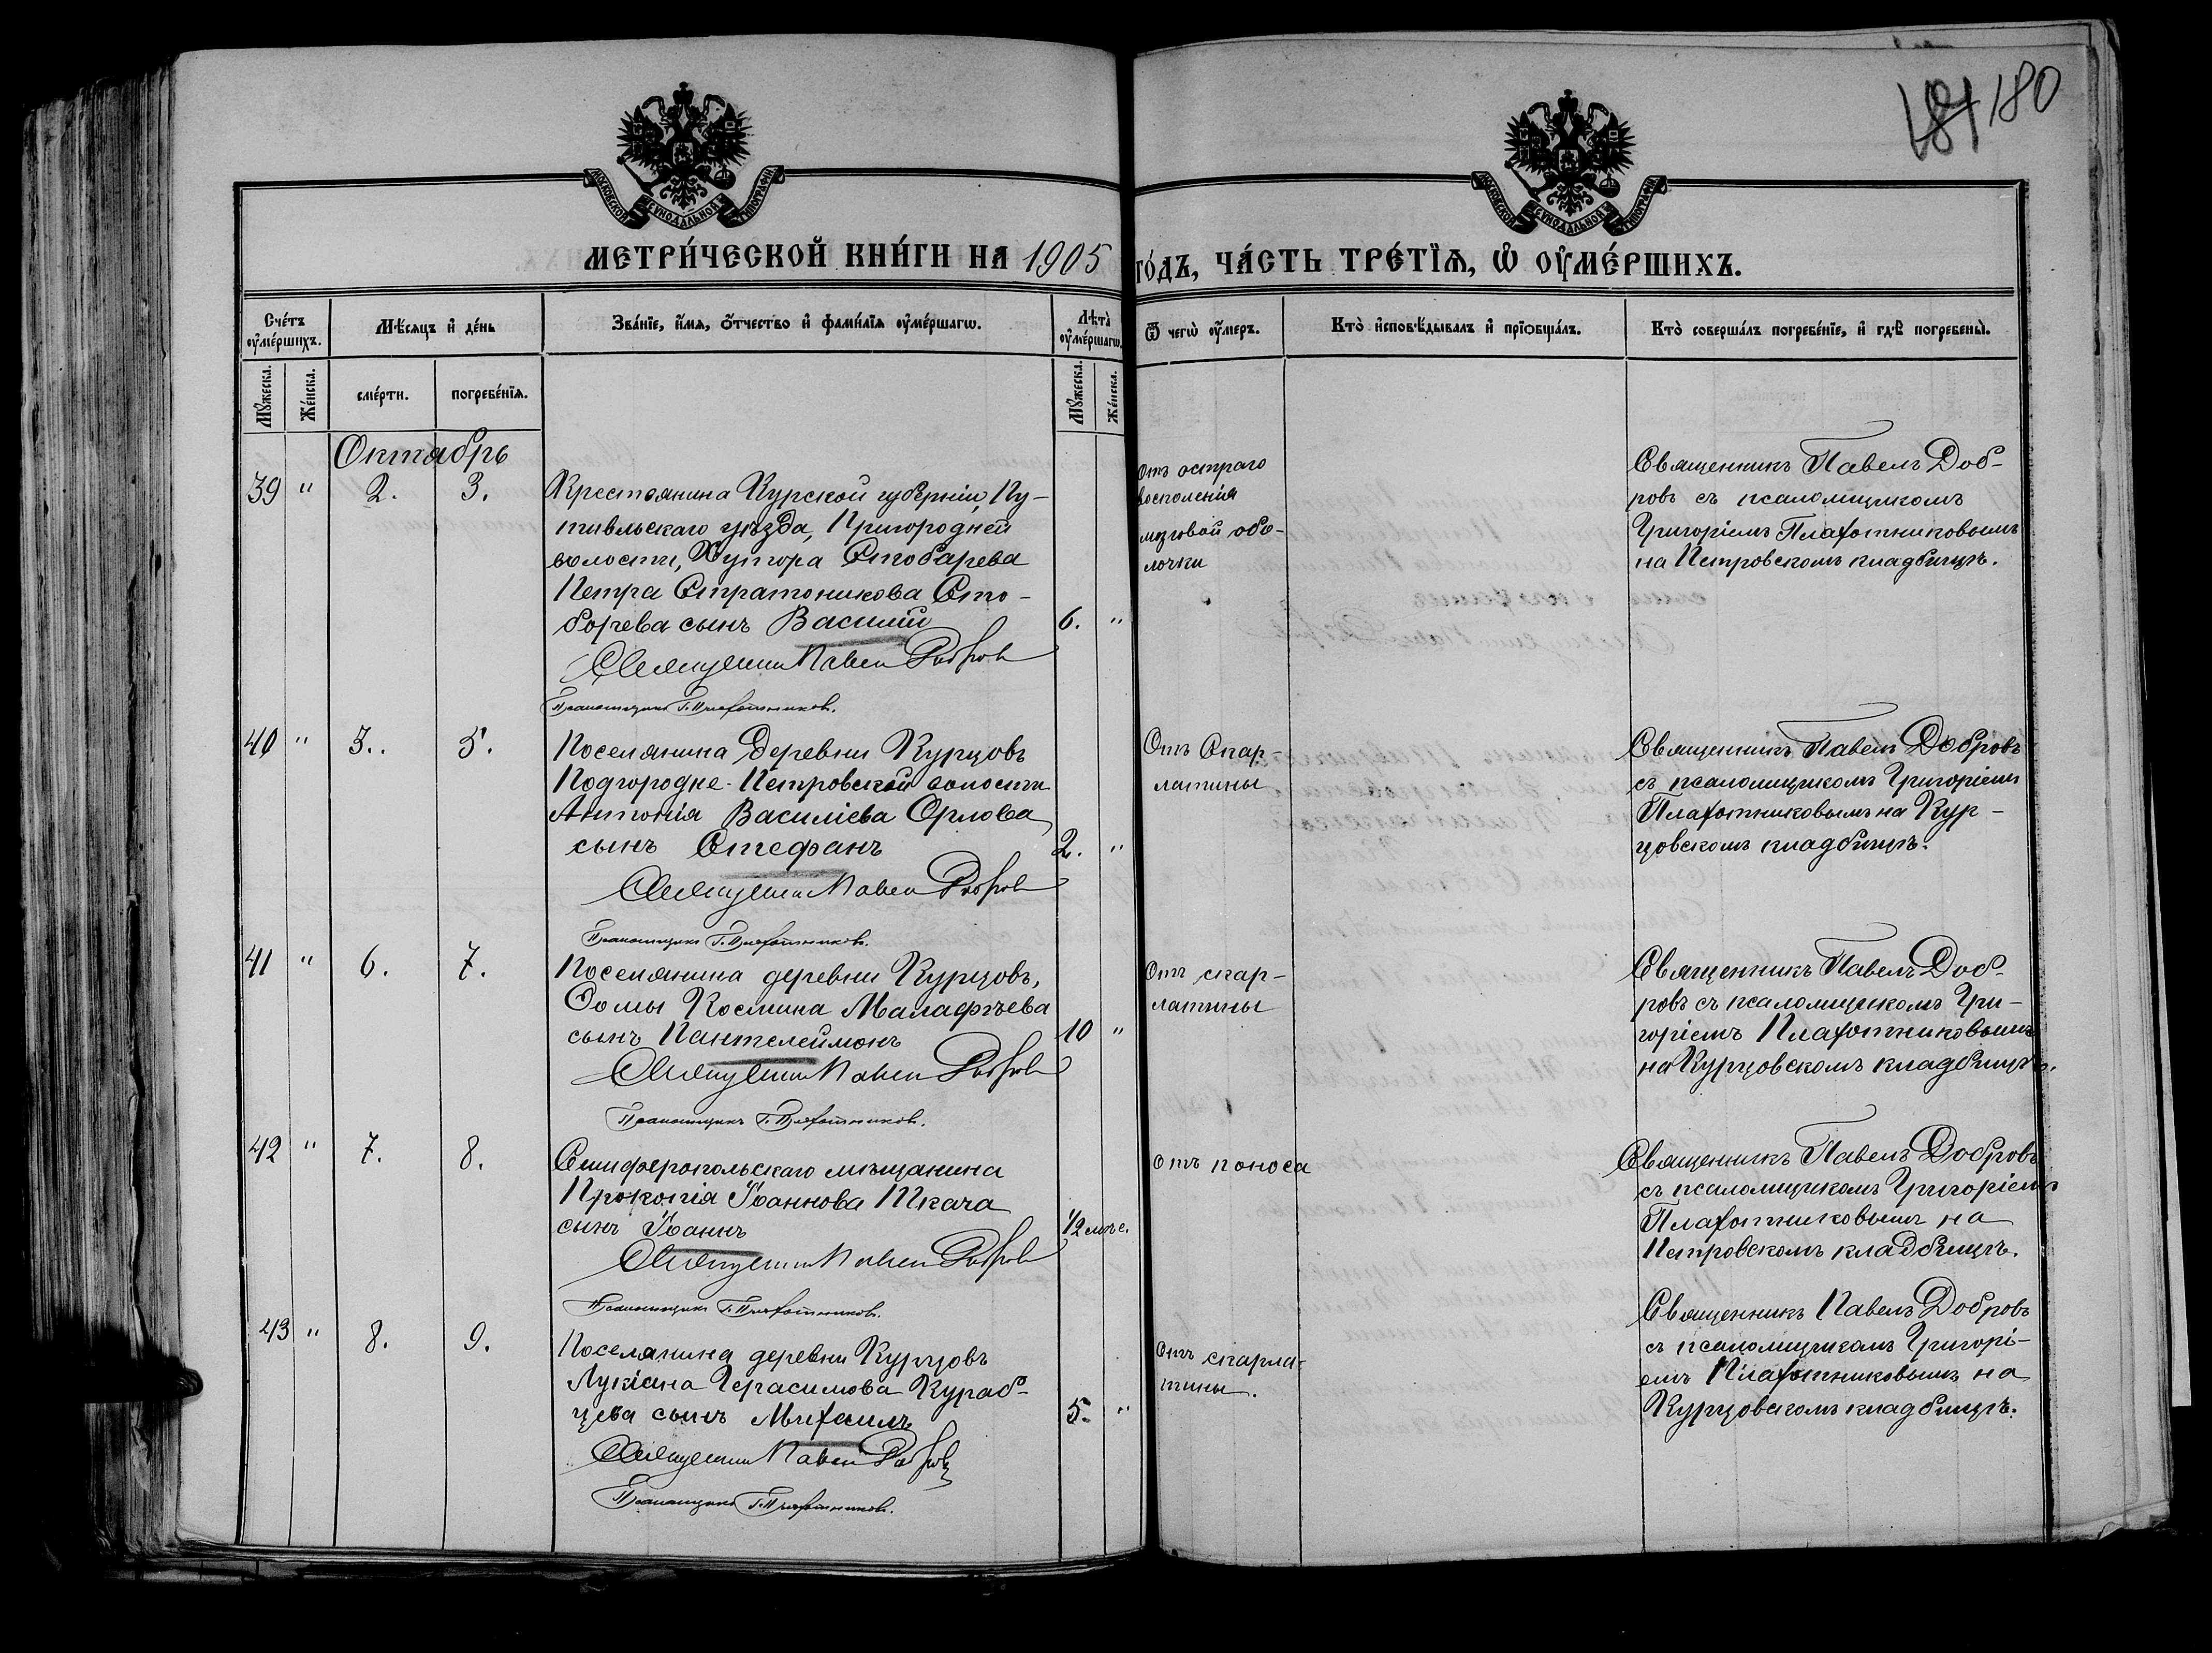 181 180
МОСКОВСКОЙ СѴНОДАЛЬНОЙ ТИПОГРАФІИ
МОСКОВСКОЙ СѴНОДАЛЬНОЙ ТИПОГРАФІИ
МЕТРИ́ЧЕСКОЙ КНИ́ГИ НА 1905 ГО́ДЪ, ЧА́СТЬ ТРЕ́ТЇѦ, Ѡ҆ ОУ҆МЕ́РШИХЪ.
Сче́тъ оу҆ме́ршихъ.
Мꙋ́жеска.
Же́нска.
Мѣ́сѧцъ и҆ де́нь
сме́рти.
погребе́нїѧ.
Зва́нїе, и҆́мѧ, ѻ҆́тчество и҆ фами́лїѧ оу҆ме́ршагѡ.
Лѣ́та̀ оу҆ме́ршагѡ.
Мꙋ́жеска.
Же́нска.
Ѿ чегѡ̀ оу҆́меръ.
Кто̀ и҆сповѣ́дывалъ и҆ прїѻбща́лъ.
Кто̀ соверша́лъ погребе́нїе, и҆ гдѣ̀ погребены̀.
Октябрь
39 " 2. 3.
Крестьянина Курской губерніи, Пу-
тивльскаго уѣзда, Пригородней
волости, Хутора Стобарева
Петра Стратоникова Сто-
борева сынъ Василій 6. "
Священникъ Павелъ Добровъ
Псаломщикъ Г. Плахотниковъ.
Отъ остраго
воспаленія
мозговой обо-
лочки
Священникъ Павелъ Доб-
ровъ съ псаломщикомъ
Григоріемъ Плахотниковымъ
на Петровскомъ кладбищѣ.
40 " 3.. 5.
Поселянина деревни Курцовъ
Подгородне-Петровской волости
Антонія Василіева Орлова
сынъ Стефанъ 2. "
Священникъ Павелъ Добровъ
Псаломщикъ Г. Плахотниковъ.
Отъ Скар-
латины
Священникъ Павелъ Добровъ
съ псаломщикомъ Григоріемъ
Плахотниковымъ на Кур-
цовскомъ кладбищѣ.
41 " 6. 7.
Поселянина деревни Курцовъ,
Ѳомы Космина Малафѣева
сынъ Пантелеймонъ 10 "
Священникъ Павелъ Добровъ
Псаломщикъ Г. Плахотниковъ.
Отъ скар-
латины
Священникъ Павелъ Доб-
ровъ съ псаломщикомъ Гри-
горіемъ Плахотниковымъ
на Курцовскомъ кладбищѣ.
42 " 7. 8.
Симферопольскаго мѣщанина
Прокопія Іоаннова Ткача
сынъ Іоаннъ 1/2 мѣс.
Священникъ Павелъ Добровъ
Псаломщикъ Г. Плахотниковъ.
отъ поноса
Священникъ Павелъ Добровъ
съ псаломщикомъ Григоріемъ
Плахотниковымъ на
Петровскомъ кладбищѣ.
43 " 8. 9.
Поселянина деревни Курцовъ
Лукіана Герасимова Кураб-
цева сынъ Михаилъ 5. "
Священникъ Павелъ Добровъ
Псаломщикъ Г. Плахотниковъ.
Отъ скарла-
тины.
Священникъ Павелъ Добровъ
съ псаломщикомъ Григорі-
емъ Плахотниковымъ на
Курцовскомъ кладбищѣ.